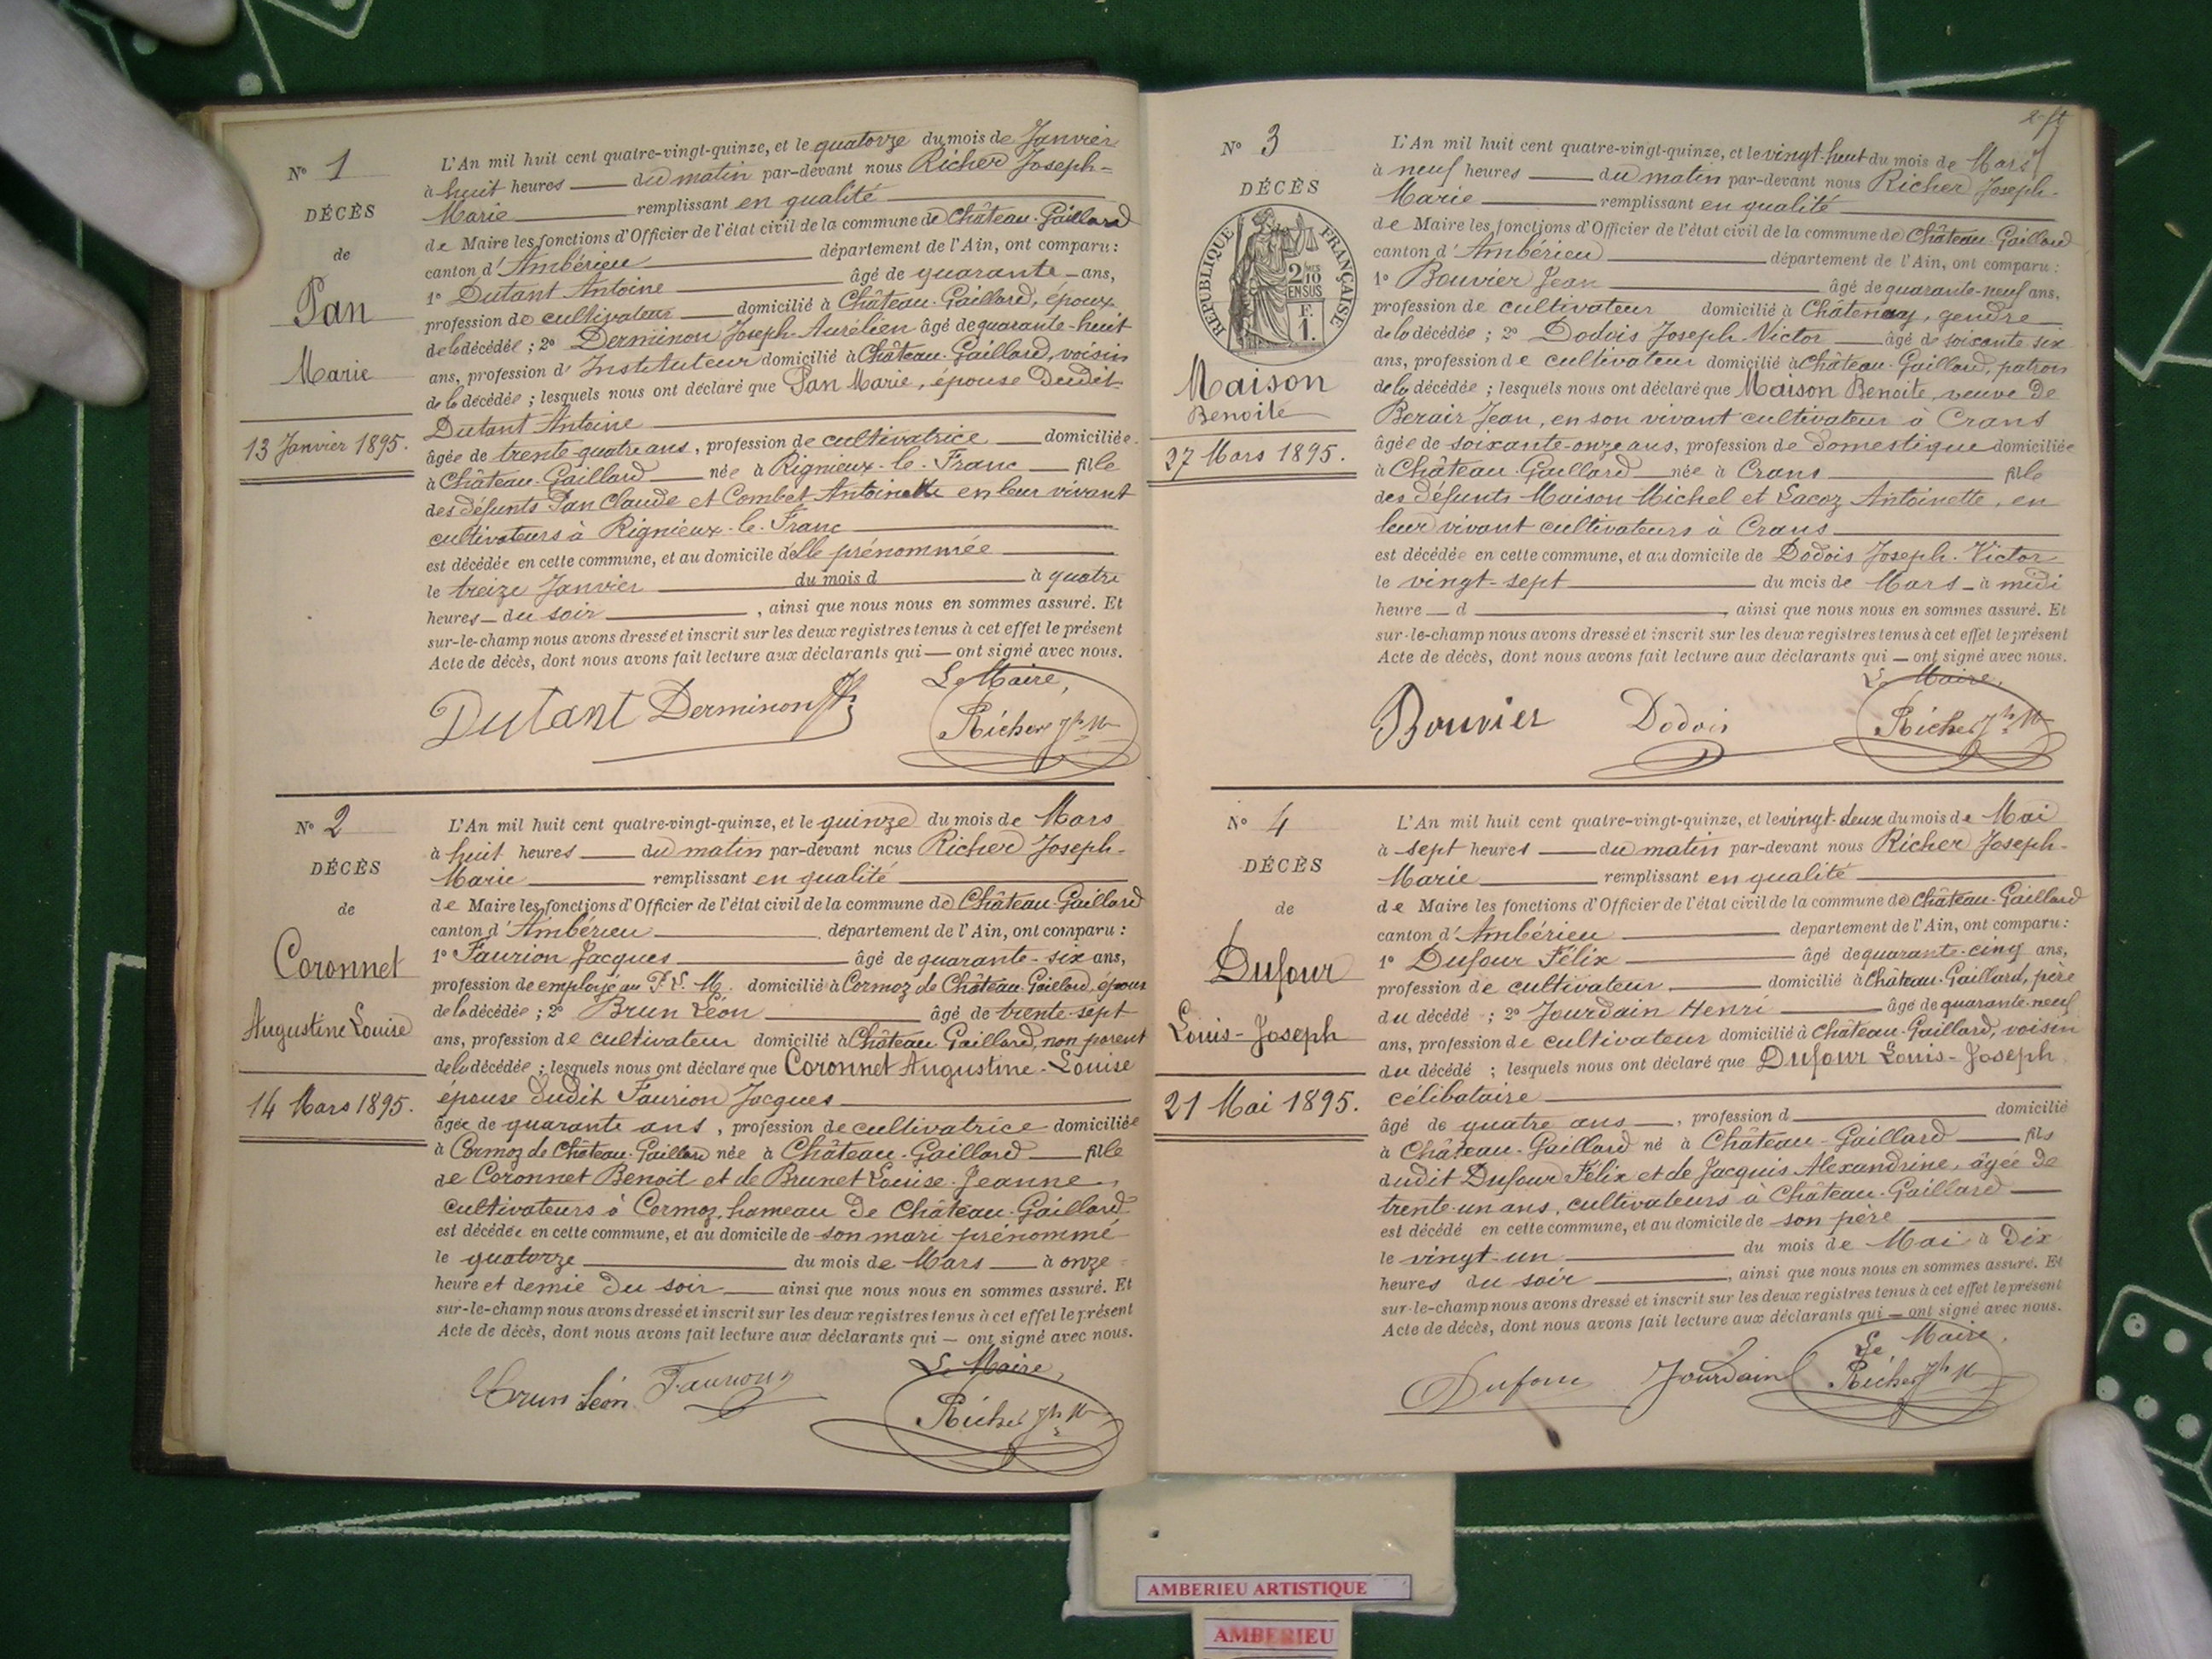 N° 1
DÉCÈS
de
Pan
Marie
13 Janvier 1895.
L'An mil huit cent quatre-vingt-quinze, et le quatorze du mois de Janvier
à huit heures du matin par-devant nous Richerd Joseph-
Marie remplissant en qualité
de Maire les fonctions d'Officier de l'état civil de la commune de Château-Gaillard
canton d'Ambérieu département de l'Ain, ont comparu :
1° Dutant Antoine âgé de quarante ans,
profession de cultivateur domicilié à Château-Gaillard, époux
de la décédée ; 2° Derminon Joseph-Aurélien âgé de quarante-huit
ans, profession d'Instituteur domicilié à Château-Gaillard, voisin
de la décédée ; lesquels nous ont déclaré que Pan Marie, épouse dudit
Dutant Antoine
âgée de trente-quatre ans, profession de cultivatrice domiciliée
à Château-Gaillard née à Rignieux-le-Franc fille
des défunts Pan Claude et Combet Antoinette en leur vivant
cultivateurs à Rignieux-le-Franc
est décédée en cette commune, et au domicile d'elle prénommée
le treize Janvier du mois d à quatre
heures du soir, ainsi que nous nous en sommes assuré. Et
sur-le-champ nous avons dressé et inscrit sur les deux registres tenus à cet effet le présent
Acte de décès, dont nous avons fait lecture aux déclarants qui — ont signé avec nous.
Le Maire,
Dutant Derminon Jh Richerd Jh Mie
N° 2
DÉCÈS
de
Coronnet
Augustine Louise
14 Mars 1895.
L'An mil huit cent quatre-vingt-quinze, et le quinze du mois de Mars
à huit heures du matin par-devant nous Richerd Joseph-
Marie remplissant en qualité
de Maire les fonctions d'Officier de l'état civil de la commune de Château-Gaillard
canton d'Ambérieu département de l'Ain, ont comparu :
1° Faurion Jacques âgé de quarante-six ans,
profession de employé au P. L. M. domicilié à Cormoz de Château-Gaillard, époux
de la décédée ; 2° Brun Léon âgé de trente-sept
ans, profession de cultivateur domicilié à Château Gaillard, non parent
de la décédée ; lesquels nous ont déclaré que Coronnet Augustine-Louise
épouse dudit Faurion Jacques
âgée de quarante ans, profession de cultivatrice domiciliée
à Cormoz de Château-Gaillard née à Château-Gaillard fille
de Coronnet Benoit et de Brunet Louise-Jeanne,
cultivateurs à Cormoz, hameau de Château-Gaillard
est décédée en cette commune, et au domicile de son mari prénommé
le quatorze du mois de Mars à onze
heure et demie du soir ainsi que nous nous en sommes assuré. Et
sur-le-champ nous avons dressé et inscrit sur les deux registres tenus à cet effet le présent
Acte de décès, dont nous avons fait lecture aux déclarants qui — ont signé avec nous.
Le Maire,
Brun Léon Faurion Richerd Jh Mie
N° 3
DÉCÈS
RÉPUBLIQUE FRANÇAISE
2 MES
10
EN SUS
F.
1.
Maison
Benoite
27 Mars 1895.
L'An mil huit cent quatre-vingt-quinze, et le vingt-huit du mois de Mars
à neuf heures du matin par-devant nous Richerd Joseph-
Marie remplissant en qualité
de Maire les fonctions d'Officier de l'état civil de la commune de Château-Gaillard
canton d'Ambérieu département de l'Ain, ont comparu :
1° Bouvier Jean âgé de quarante-neuf ans,
profession de cultivateur domicilié à Châtenay, gendre
de la décédée ; 2° Dodois Joseph-Victor âgé de soixante six
ans, profession de cultivateur domicilié à Château-Gaillard, patron
de la décédée ; lesquels nous ont déclaré que Maison Benoite, veuve de
Berair Jean, en son vivant cultivateur à Crans
âgée de soixante-onze ans, profession de domestique domiciliée
à Château-Gaillard née à Crans fille
des défunts Maison Michel et Lacoz Antoinette, en
leur vivant cultivateurs à Crans
est décédée en cette commune, et au domicile de Dodois Joseph-Victor
le vingt-sept du mois de Mars à midi
heure d, ainsi que nous nous en sommes assuré. Et
sur-le-champ nous avons dressé et inscrit sur les deux registres tenus à cet effet le présent
Acte de décès, dont nous avons fait lecture aux déclarants qui — ont signé avec nous.
Le Maire,
Bouvier Dodois Richerd Jh Mie
N° 4
DÉCÈS
de
Dufour
Louis-Joseph
21 Mai 1895.
L'An mil huit cent quatre-vingt-quinze, et le vingt-deux du mois de Mai
à sept heures du matin par-devant nous Richerd Joseph-
Marie remplissant en qualité
de Maire les fonctions d'Officier de l'état civil de la commune de Château-Gaillard
canton d'Ambérieu département de l'Ain, ont comparu :
1° Dufour Félix âgé de quarante-cinq ans,
profession de cultivateur domicilié à Château-Gaillard, père
du décédé ; 2° Jourdain Henri âgé de quarante-neuf
ans, profession de cultivateur domicilié à Château-Gaillard, voisin
du décédé ; lesquels nous ont déclaré que Dufour Louis-Joseph
célibataire
âgé de quatre ans, profession d domicilié
à Château-Gaillard né à Château-Gaillard fils
dudit Dufour Félix et de Jacquis Alexandrine, âgée de
trente-un ans, cultivateurs à Château-Gaillard
est décédé en cette commune, et au domicile de son père
le vingt-un du mois de Mai à Dix
heures du soir, ainsi que nous nous en sommes assuré. Et
sur-le-champ nous avons dressé et inscrit sur les deux registres tenus à cet effet le présent
Acte de décès, dont nous avons fait lecture aux déclarants qui — ont signé avec nous.
Le Maire,
Dufour Jourdain Richerd Jh Mie
AMBERIEU ARTISTIQUE
AMBERIEU